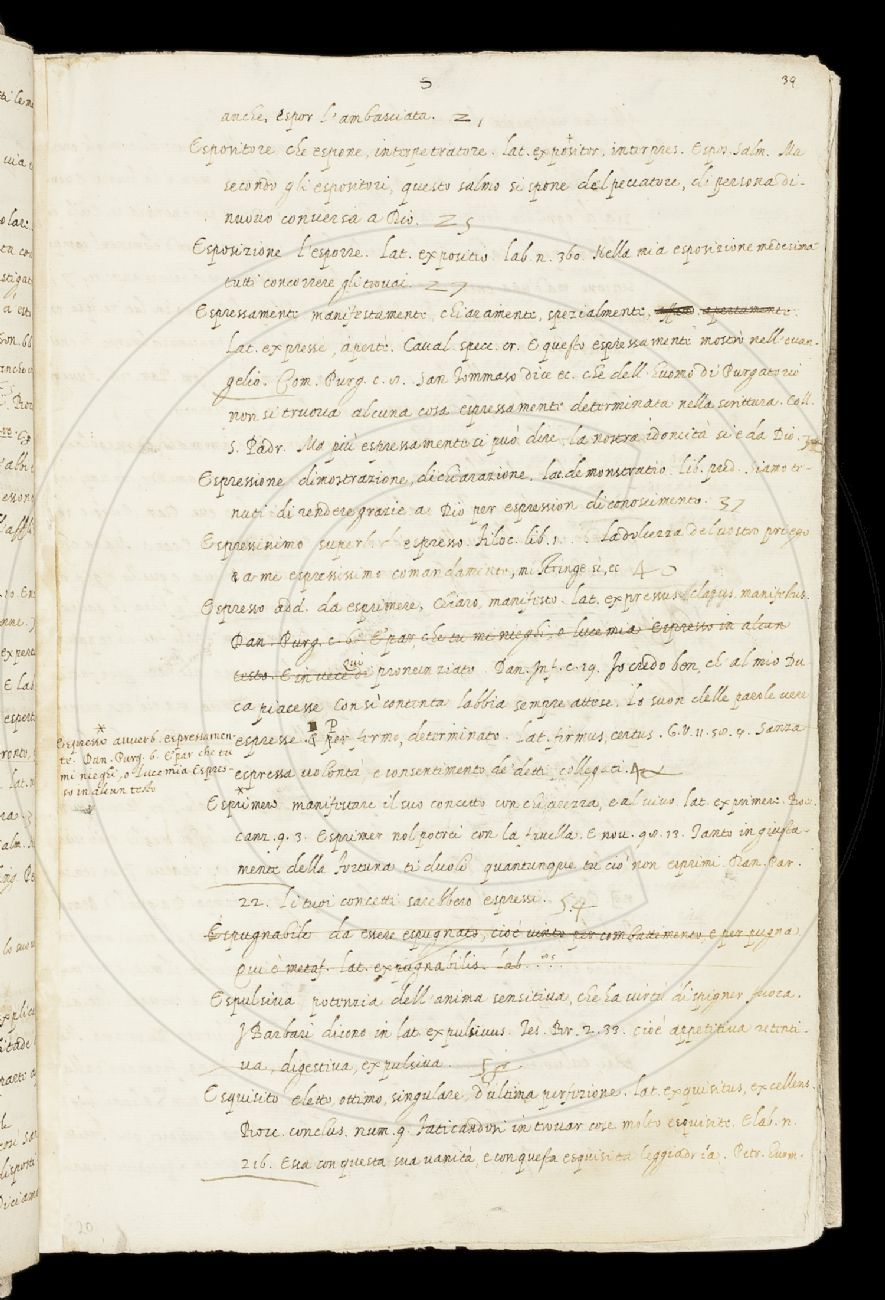 S
39
anche, espor l'ambasciata. 21
Espositore che espone, interpetratore. lat. expositor, interpres. Espos. Salm. Ma
secondo gli espositori, questo salmo si spone del peccatore, di persona di-
nuovo conversa a Dio. 25
Esposizione l'esporre. lat. expositio lab. n. 360. Nella mia esposizione medesima
tutti concorrere gli trovai. 27
Espressamente manifestamente, chiaramente, spezialmente, apertamente.
lat. expresse, aperte. Caval. specc. cr. E questo espressamente mostrò nell'evan-
gelio. Com. Purg. c. San Tommaso dice ec. che dell'huomo di Purgatorio
non si truova alcuna cosa espressamente determinata nella scrittura. Coll.
S. Padr. Ma più espressamente si può dire, la nostra idoneità si è da Dio.
Espressione dimostrazione, dichiarazione. lat. demonstratio. lib. pred. Siamo te-
nuti di rendere grazie a Dio per espression di conoscimento. 37
Espressissimo superl. d espresso. Filoc. lib. 1. La dolcezza del vostro priego
a me espressissimo comandamento, mi stringe sì, ec 40
Espresso add. da esprimere, chiaro, manifesto. lat. expressus, manifestus.
Dan. Purg. c. 6. E' par, che tu mi nieghi, o luce mia Espresso in alcun
testo. E in vece di pronunziato. Dan. Inf. c. 19. Io credo ben, ch' al mio Du
qui
ca piacesse Con sì contenta labbia sempre attese. Lo suon delle parole vere
espresse. & Per fermo, determinato. lat. firmus, certus. G. V. 11. Sanza
P
espressa volontà e consentimento de' detti collegati.
* Espresso avverb. espressamen-
te. Dan. Purg. 6. E' par che tu
mi nieghi, o luce mia Espres-
so in alcun testo
Esprimere manifestare il suo concetto con chiarezza, e al vivo. lat. exprimere. Boc.
canz. 9. 3. Esprimer nol potrei con la favella. E nov. 98. 13. Tanto ingiusta-
mente della fortuna ti duoli quantunque tu ciò non esprimi. Dan. Par.
22. Li tuoi concetti sarebbero espressi. 54
Espugnabile da essere espugnato, cioè vinto per combattimento e per pugna
Qui è metaf. lat. expugnabilis. lab.
Espulsiva potenzia dell'anima sensitiva, che ha virtù di spigner fuora.
I Barbari dicono in lat. expulsivus. Tes. Br. 2. 33. cioè appetitiva ritenti-
va, digestiva, expulsiva.
Esquisito eletto, ottimo, singulare, d'ultima perfezione. lat. exquisitus, excellens.
Bocc. conclus. num. 9. Faticandosi in trovar cose molto esquisite. E lab. n.
216. Essa con questa sua vanità, e con questa esquisita leggiadria. Petr. huom.
20